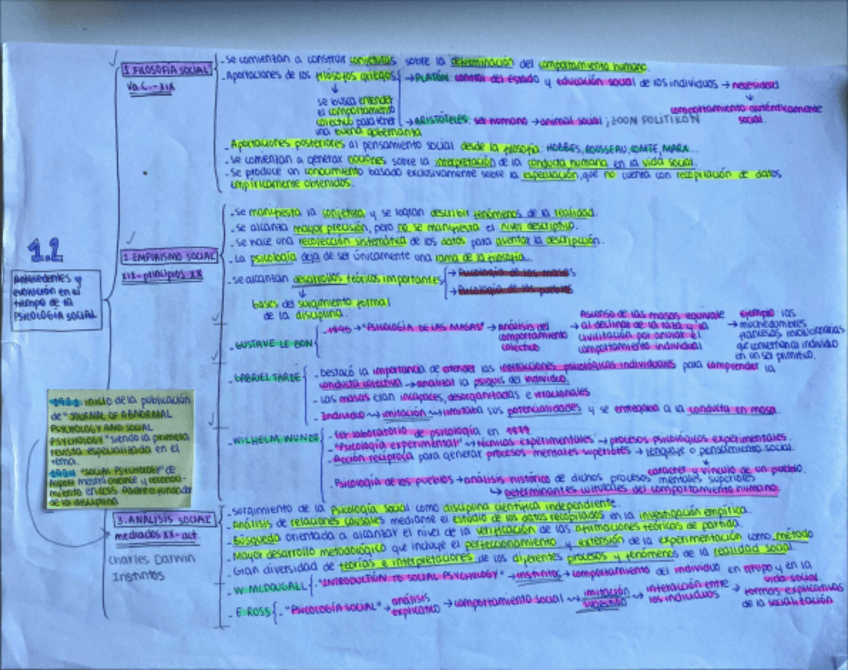 1.2
Antecedentes y
evolución en el
tiempo de la
PSICOLOGÍA SOCIAL
1. FILOSOFÍA SOCIAL
V a.C. - XIX
- Se comienzan a construir conjeturas sobre la determinación del comportamiento humano.
- Aportaciones de los filósofos griegos
→ PLATÓN: control del estado y educación social de los individuos → necesidad
comportamiento auténticamente
social.
se busca entender
el comportamiento
colectivo para tener
una buena gobernanza
→ ARISTÓTELES: ser humano → animal social; ZOON POLITIKÓN
- Aportaciones posteriores al pensamiento social desde la filosofía: HOBBES, ROUSSEAU, COMTE, MARX...
- Se comienzan a generar nociones sobre la interpretación de la conducta humana en la vida social.
- Se produce un conocimiento basado exclusivamente sobre la especulación, que no cuenta con recopilación de datos
empíricamente obtenidos.
2. EMPIRISMO SOCIAL
XIX - principios XX
- Se manifiesta la conjetura y se logran describir fenómenos de la realidad.
- Se alcanza mayor precisión, pero no se manifiesta el nivel descriptivo.
- Se hace una recolección sistemática de los datos para aventar la descripción.
- La psicología deja de ser únicamente una rama de la filosofía.
- Se alcanzan desarrollos teóricos importantes
→ Psicología de las masas
→ Psicología de los pueblos
bases del surgimiento formal
de la disciplina.
- GUSTAVE LE BON
- 1895 → "PSICOLOGÍA DE LAS MASAS" → Análisis del
comportamiento
colectivo
→ Ascenso de las masas equivale
al declinar de la raza y la
civilización por anular el
comportamiento individual
→ ejemplo: las
muchedumbres
francesas revolucionarias
que convertían al individuo
en un ser primitivo.
- GABRIEL TARDE
- Destacó la importancia de entender las interacciones psicológicas individuales para comprender la
conducta colectiva → analizar la psiquis del individuo.
- Las masas eran incapaces, desorganizadas e irracionales
- Individuo → imitación → limitaba las potencialidades y se entregaba a la conducta en masa.
- WILHELM WUNDT
- 1er laboratorio de psicología en 1879
- "Psicología experimental" → técnicas experimentales → procesos psicológicos experimentales.
- Acción recíproca para generar procesos mentales superiores → lenguaje o pensamiento social.
carácter y vínculo de un pueblo.
- Psicología de los pueblos → análisis histórico de dichos procesos mentales superiores
↳ determinantes culturales del comportamiento humano.
1921: inicio de la publicación
de "JOURNAL OF ABNORMAL
PSYCHOLOGY AND SOCIAL
PSYCHOLOGY" siendo la primera
revista especializada en el
tema.
1924: "SOCIAL PSYCHOLOGY" de
Allport
de la disciplina
3. ANÁLISIS SOCIAL
mediados XX - act.
Charles Darwin
Instintos
- Surgimiento de la psicología social como disciplina científica independiente.
- Análisis de relaciones causales mediante el estudio de los datos recopilados en la investigación empírica.
- Búsqueda orientada a alcanzar el nivel de la verificación de las afirmaciones teóricas de partida.
- Mayor desarrollo metodológico que incluye el perfeccionamiento y extensión de la experimentación como método
- Gran diversidad de teorías e interpretaciones de los diferentes procesos y fenómenos de la realidad social.
- W. MCDOUGALL - "INTRODUCTION TO SOCIAL PSYCHOLOGY" → instintos → comportamiento del individuo en grupo y en la
vida social.
- E. ROSS - "PSICOLOGÍA SOCIAL" → análisis
explicativo
→ comportamiento social → imitación
sugestión
→ interacción entre
los individuos
→ formas explicativas
de la socialización